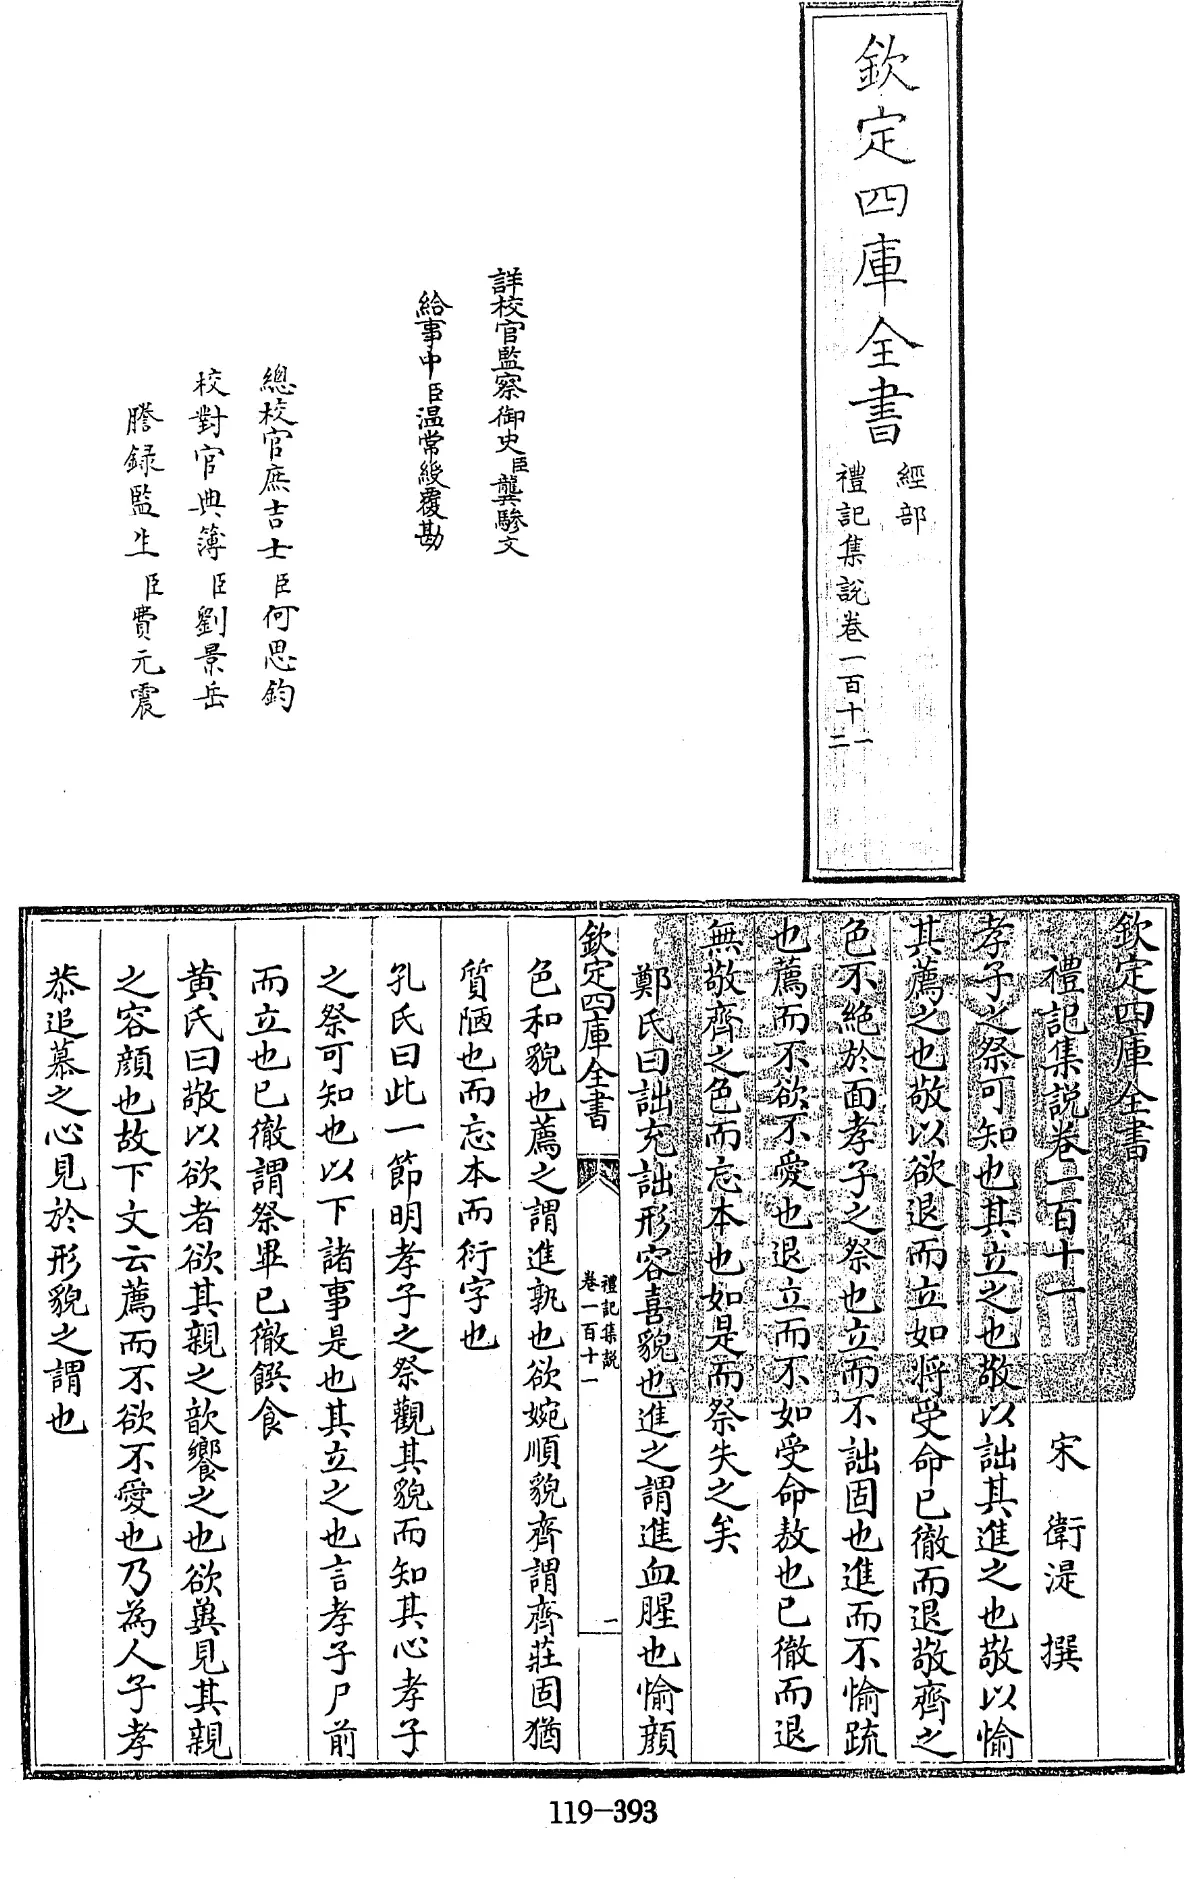 欽定四庫全書
經部
禮記集說卷一百十一
二
詳校官監察御史臣龔驂文
給事中臣温常綬覆勘
總校官庶吉士臣何思鈞
校對官典簿臣劉景岳
謄録監生臣費元震
欽定四庫全書
禮記集說卷一百十一
宋 衛湜 撰
孝子之祭可知也其立之也敬以詘其進之也敬以愉
其薦之也敬以欲退而立如將受命已徹而退敬齊之
色不絶於面孝子之祭也立而不詘固也進而不愉疏
也薦而不欲不愛也退立而不如受命敖也已徹而退
無敬齊之色而忘本也如是而祭失之矣
鄭氏曰詘充詘形容喜貌也進之謂進血腥也愉顔
欽定四庫全書
禮記集說
卷一百十一
一
色和貌也薦之謂進孰也欲婉順貌齊謂齊莊固猶
質陋也而忘本而衍字也
孔氏曰此一節明孝子之祭觀其貌而知其心孝子
之祭可知也以下諸事是也其立之也言孝子尸前
而立也已徹謂祭畢已徹饌食
黄氏曰敬以欲者欲其親之歆饗之也欲兾見其親
之容顔也故下文云薦而不欲不愛也乃為人子孝
恭追慕之心見於形貌之謂也
119-393